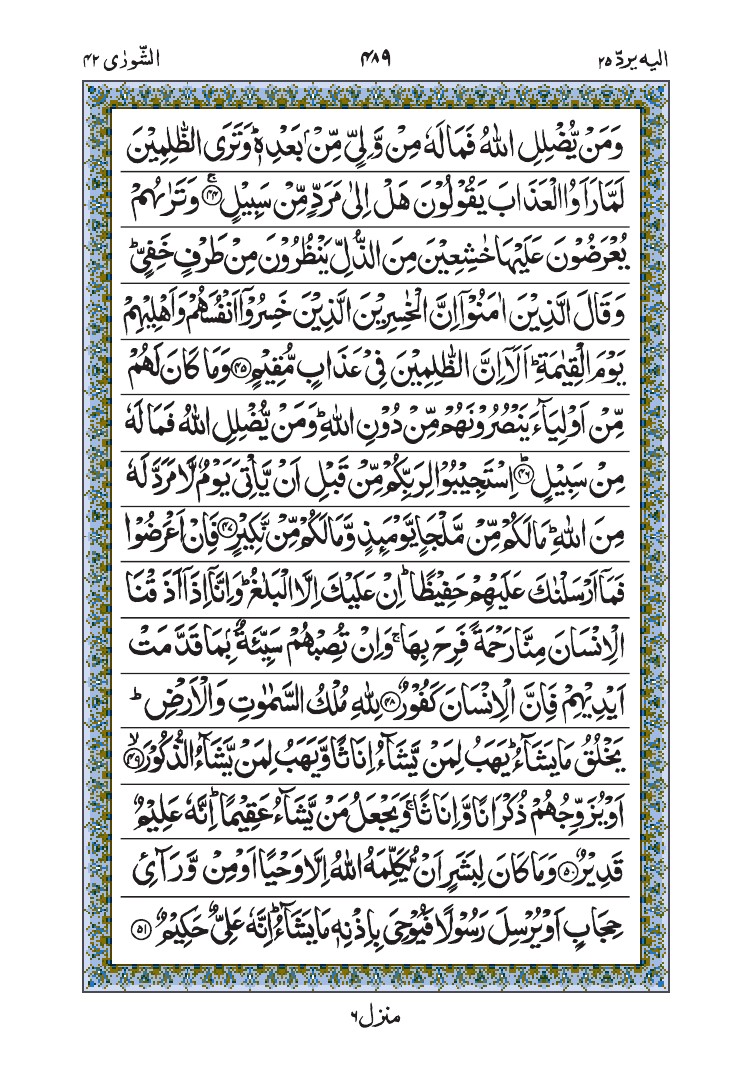 الیه یردّ ۲۵
۴۸۹
الشّورٰی ۴۲
وَمَنْ يُّضْلِلِ اللّٰهُ فَمَا لَهٗ مِنْ وَّلِيٍّ مِّنْۢ بَعْدِهٖ ؕ وَتَرَى الظّٰلِمِيْنَ
لَمَّا رَاَوُا الْعَذَابَ يَقُوْلُوْنَ هَلْ اِلٰى مَرَدٍّ مِّنْ سَبِيْلٍ ۚ﴿۴۴﴾ وَتَرٰىهُمْ
يُعْرَضُوْنَ عَلَيْهَا خٰشِعِيْنَ مِنَ الذُّلِّ يَنْظُرُوْنَ مِنْ طَرْفٍ خَفِيٍّ ؕ
وَقَالَ الَّذِيْنَ اٰمَنُوْۤا اِنَّ الْخٰسِرِيْنَ الَّذِيْنَ خَسِرُوْۤا اَنْفُسَهُمْ وَاَهْلِيْهِمْ
يَوْمَ الْقِيٰمَةِ ؕ اَلَاۤ اِنَّ الظّٰلِمِيْنَ فِيْ عَذَابٍ مُّقِيْمٍ ﴿۴۵﴾ وَمَا كَانَ لَهُمْ
مِّنْ اَوْلِيَآءَ يَنْصُرُوْنَهُمْ مِّنْ دُوْنِ اللّٰهِ ؕ وَمَنْ يُّضْلِلِ اللّٰهُ فَمَا لَهٗ
مِنْ سَبِيْلٍ ؕ﴿۴۶﴾ اِسْتَجِيْبُوْا لِرَبِّكُمْ مِّنْ قَبْلِ اَنْ يَّاْتِيَ يَوْمٌ لَّا مَرَدَّ لَهٗ
مِنَ اللّٰهِ ؕ مَا لَكُمْ مِّنْ مَّلْجَاٍ يَّوْمَئِذٍ وَّمَا لَكُمْ مِّنْ نَّكِيْرٍ ﴿۴۷﴾ فَاِنْ اَعْرَضُوْا
فَمَاۤ اَرْسَلْنٰكَ عَلَيْهِمْ حَفِيْظًا ؕ اِنْ عَلَيْكَ اِلَّا الْبَلٰغُ ؕ وَاِنَّاۤ اِذَاۤ اَذَقْنَا
الْاِنْسَانَ مِنَّا رَحْمَةً فَرِحَ بِهَا ۚ وَاِنْ تُصِبْهُمْ سَيِّئَةٌۢ بِمَا قَدَّمَتْ
اَيْدِيْهِمْ فَاِنَّ الْاِنْسَانَ كَفُوْرٌ ﴿۴۸﴾ لِلّٰهِ مُلْكُ السَّمٰوٰتِ وَالْاَرْضِ ؕ
يَخْلُقُ مَا يَشَآءُ ؕ يَهَبُ لِمَنْ يَّشَآءُ اِنَاثًا وَّيَهَبُ لِمَنْ يَّشَآءُ الذُّكُوْرَ ۙ﴿۴۹﴾
اَوْ يُزَوِّجُهُمْ ذُكْرَانًا وَّاِنَاثًا ۚ وَيَجْعَلُ مَنْ يَّشَآءُ عَقِيْمًا ؕ اِنَّهٗ عَلِيْمٌ
قَدِيْرٌ ﴿۵۰﴾ وَمَا كَانَ لِبَشَرٍ اَنْ يُّكَلِّمَهُ اللّٰهُ اِلَّا وَحْيًا اَوْ مِنْ وَّرَآئِ
حِجَابٍ اَوْ يُرْسِلَ رَسُوْلًا فَيُوْحِيَ بِاِذْنِهٖ مَا يَشَآءُ ؕ اِنَّهٗ عَلِيٌّ حَكِيْمٌ ﴿۵۱﴾
منزل ۶